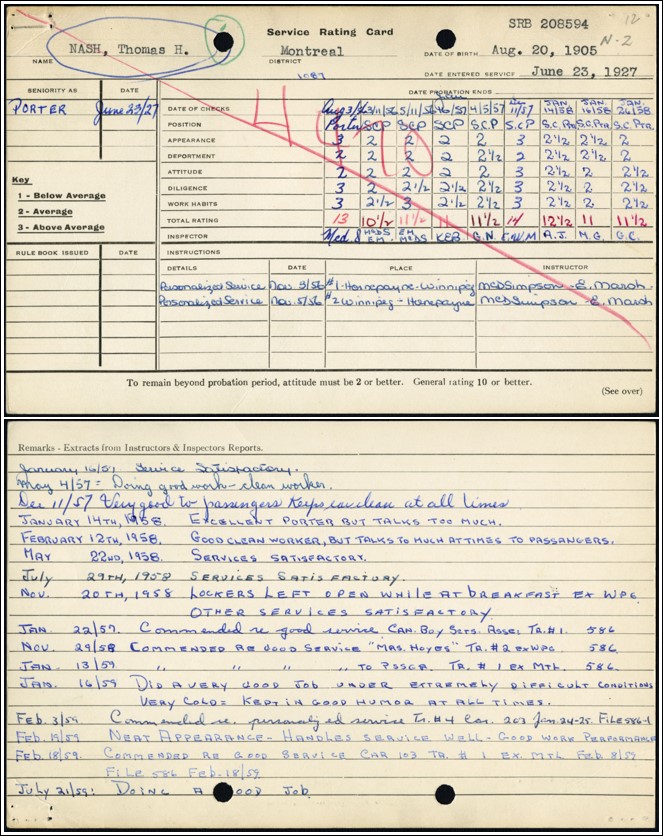 SRB 208594
12
N-2
Service Rating Card
NASH, Thomas H.
Montreal
DATE OF BIRTH Aug. 20, 1905
NAME
DISTRICT
DATE ENTERED SERVICE June 23, 1927
1087
DATE PROBATION ENDS
SENIORITY AS DATE
PORTER June 23/27
DATE OF CHECKS 3/11/56 5/11/56 16/57 4/5/57 Dec 11/57 JAN. 14/58 JAN. 16/58 JAN. 26/58
POSITION Porter SCP SCP SCP S.C.P S.C.P S.C. Pr. S.C. Ptr. S.C. Ptr.
APPEARANCE 3 2 2 2 2 3 2½ 2½ 2½
DEPORTMENT 2 2 2 2 2½ 2 2½ 2½ 2
ATTITUDE 2 2 2 2 2 3 2½ 2 2½
DILIGENCE 3 2 2½ 2½ 2½ 3 2½ 2 2½
WORK HABITS 3 2½ 3 2½ 2½ 3 2½ 2 2½
TOTAL RATING 13 10½ 11½ 11 11½ 14 12½ 11 11½
INSPECTOR McDS E.M. EM McDS KEB G.N. A.J. M.G. G.C.
4470
Key
1 - Below Average
2 - Average
3 - Above Average
RULE BOOK ISSUED DATE
INSTRUCTIONS
DETAILS DATE PLACE INSTRUCTOR
Personalized Service Nov. 3/56 #1-Hornepayne-Winnipeg McDSimpson - E. Marsh
Personalized Service Nov. 5/56 #2 Winnipeg - Hornepayne McDSimpson - E. Marsh
To remain beyond probation period, attitude must be 2 or better. General rating 10 or better.
(See over)
Remarks - Extracts from Instructors & Inspectors Reports.
January 16/57 Service Satisfactory.
May 4/57 = Doing good work - clean worker.
Dec 11/57 Very good to passengers Keeps car clean at all times
JANUARY 14TH, 1958. EXCELLENT PORTER BUT TALKS TOO MUCH.
FEBRUARY 12TH, 1958. GOOD CLEAN WORKER, BUT TALKS TO MUCH AT TIMES TO PASSANGERS.
MAY 22ND, 1958. SERVICES SATISFACTORY.
July 29TH, 1958 SERVICES SATISFACTORY.
NOV. 20TH, 1958 LOCKERS LEFT OPEN WHILE AT BREAKFAST EX WPG
OTHER SERVICES SATISFACTORY
JAN. 22/57. Commended re good service CAN. Boy Scts. Assc. TR. #1. 586
NOV. 29/58 COMMENDED RE GOOD SERVICE "MRS. HOYES" TR. #2 EX WPG. 586
JAN. 13/59 " " " " TO PSSGR. TR. #1 EX MTL. 586
JAN. 16/59 DID A VERY GOOD JOB UNDER EXTREMELY DIFFICULT CONDITIONS
VERY COLD = KEPT IN GOOD HUMOR AT ALL TIMES.
Feb. 3/59 Commended re. personalized service Tr. #4 Car. 203 Jan. 24-25. File 586-1
FEB. 19/59 NEAT APPEARANCE - HANDLES SERVICE WELL - GOOD WORK PERFORMANCE
FEB. 18/59. COMMENDED RE GOOD SERVICE CAR 103 TR. #1 EX. MTL FEB 8/59
FILE 586 FEB. 18/59.
JULY 21/59: DOING A GOOD JOB